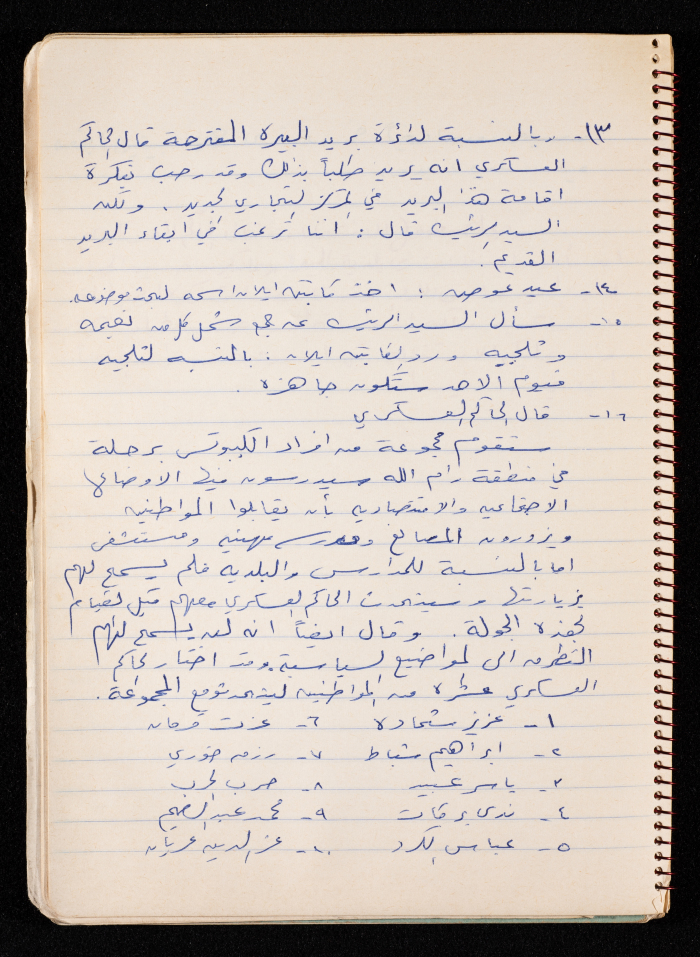 ١٣- وبالنسبة لدائرة بريد البيرة المقترحة قال الحاكم
العسكري انه يريد طلباً بذلك وقد رحب بفكرة
اقامة هذا البريد في المركز التجاري الجديد . ولكن
السيد الرئيس قال : اننا نرغب في ابقاء البريد
القديم .
١٤- عيد عوض : اخذ كابتن ايلان اسمه لبحث موضوعه.
١٥- سأل السيد الرئيس عن جمع شمل كل من نعيمه
وثلجيه ورد الكابتن ايلان : بالنسبه لثلجيه
فيوم الاحد ستكون جاهزه .
١٦- قال الحاكم العسكري
ستقوم مجموعة من افراد الكيبوتس برحلة
في منطقة رام الله سيدرسون فيها الاوضاع
الاجتماعيه والاقتصاديه بأن يقابلوا المواطنين
ويزورون المصانع ومدرسه مهنيه ومستشفى
اما بالنسبة للمدارس والبلديه فلم يسمح لهم
بزيارتها وسيتحدث الحاكم العسكري معهم قبل القيام
بهذه الجولة . وقال ايضاً انه لن يسمح لهم
التطرق الى المواضيع السياسية وقد اختار الحاكم
العسكري عشره من المواطنين ليتحدثوا مع المجموعة .
١- عزيز شحاده ٦- عزت
٢- ابراهيم شباط ٧- رزق خوري
٣- ياسر عبيد ٨- حرب الحرب
٤- ندى بركات ٩- محمد عبد
٥- عباس الكرد ١٠- عز الدين عريان